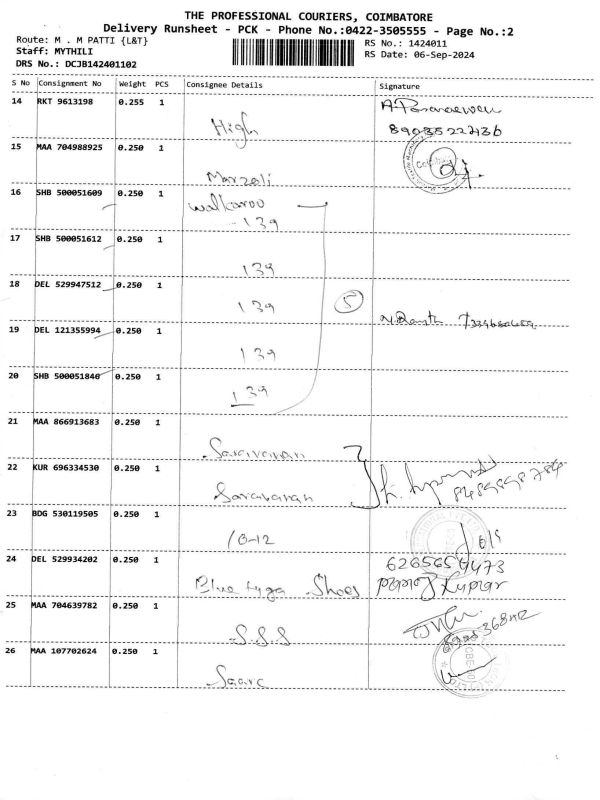 THE PROFESSIONAL COURIERS, COIMBATORE
Delivery Runsheet - PCK - Phone No.:0422-3505555 - Page No.:2
Route: M . M PATTI {L&T}
RS No.: 1424011
Staff: MYTHILI
RS Date: 06-Sep-2024
DRS No.: DCJB142401102
S No Consignment No Weight PCS Consignee Details Signature
14 RKT 9613198 0.255 1 High
15 MAA 704988925 0.250 1 Marzoli
16 SHB 500051609 0.250 1 Walkaroo
- 139
17 SHB 500051612 0.250 1 139
18 DEL 529947512 0.250 1 139 5
19 DEL 121355994 0.250 1 139
20 SHB 500051846 0.250 1 139
21 MAA 866913683 0.250 1 Saravanan
22 KUR 696334530 0.250 1 Saravanan
23 BDG 530119505 0.250 1 10-12
24 DEL 529934202 0.250 1 Blue Shoes
25 MAA 704639782 0.250 1 S.S.S
26 MAA 107702624 0.250 1 Saarc